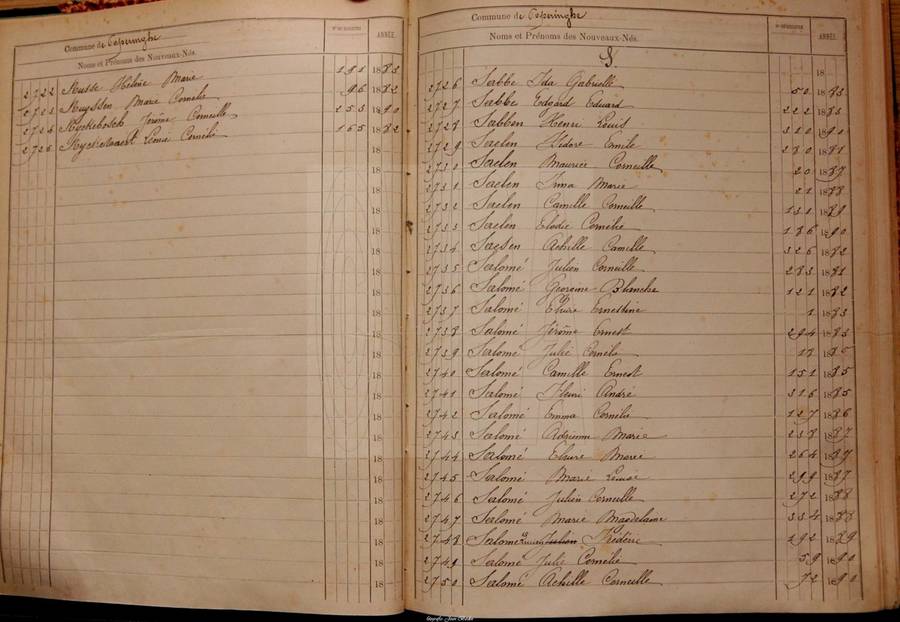 Commune de Poperinghe
Noms et Prénoms des Nouveaux-Nés. ANNÉE.
2722 Russe Hélène Marie 181 1883
2723 Ruyssen Marie Cornelie 96 1882
2724 Ryckebosch Jérôme Corneille 253 1890
2725 Cornélie 165 1882
Commune de Poperinghe
Noms et Prénoms des Nouveaux-Nés. ANNÉE.
S.
2726 Sabbe Ida Gabrielle 50 1883
2727 Sabbe Edgard Eduard 222 1883
2728 Sabben Henri Louis 310 1890
2729 Saelen Isidore Emile 280 1881
2730 Saelen Maurice Corneille 20 1887
2731 Saelen Irma Marie 21 1888
2732 Saelen Camille Corneille 131 1889
2733 Saelen Elodie Cornelie 186 1890
2734 Saesen Achille Camille 326 1882
2735 Salomé Julien Corneille 283 1881
2736 Salomé Georgine Blanche 121 1882
2737 Salomé Elvire Ernestine 1 1883
2738 Salomé Jérôme Ernest 294 1883
2739 Salomé Julie Cornélie 18
2740 Salomé Camille Ernest 151 1885
2741 Salomé Henri André 316 1885
2742 Salomé Emma Cornélie 127 1886
2743 Salomé Adrienne Marie 238 1887
2744 Salomé Elvire Marie 264 1887
2745 Salomé Marie Louise 299 1887
2746 Salomé Julien Corneille 272 1888
2747 Salomé Marie Magdelaine 334 1888
2748 Salomé Lucien Julien Frédéric 192 1889
2749 Salomé Julie Cornélie 59 1890
2750 Salomé Achille Corneille 72 1890